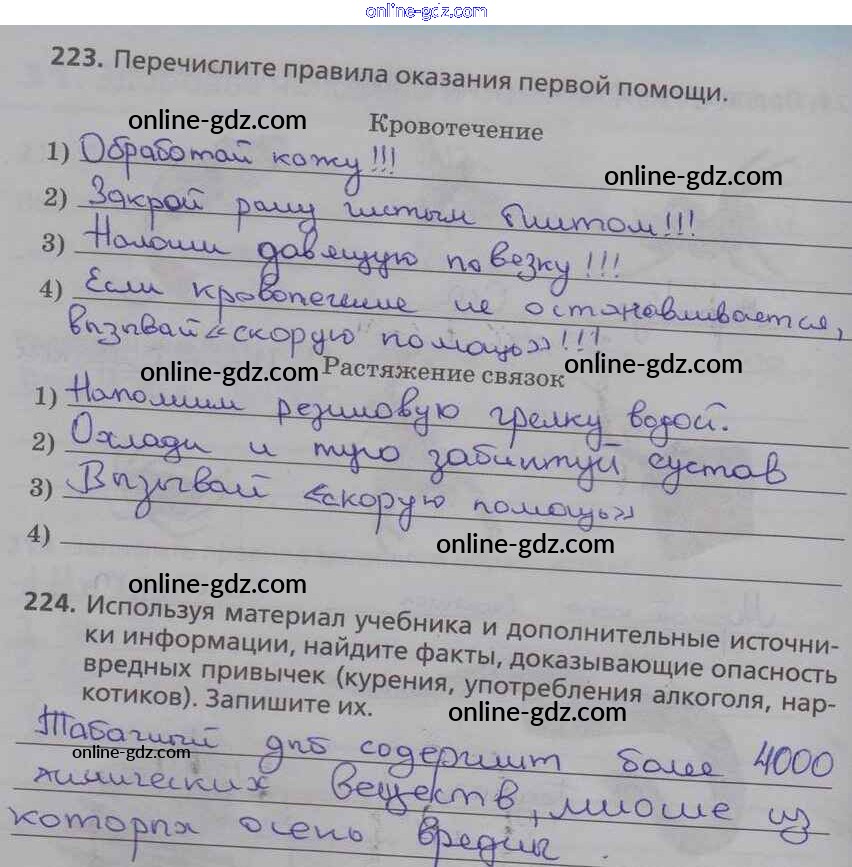 online-gdz.com
223. Перечислите правила оказания первой помощи.
online-gdz.com
Кровотечение
1) Обработай кожу!!!
online-gdz.com
2) Закрой рану чистым бинтом!!!
3) Наложи давящую повезку!!!
4) Если кровотечение не останавливается,
вызывай «скорую помощь»!!!
online-gdz.com
online-gdz.com
Растяжение связок
1) Наполним резиновую грелку водой.
2) Охлади и туго забинтуй сустав
3) Вызывай «скорую помощь»
4)
online-gdz.com
online-gdz.com
224. Используя материал учебника и дополнительные источни-
ки информации, найдите факты, доказывающие опасность
вредных привычек (курения, употребления алкоголя, нар-
котиков). Запишите их.
online-gdz.com
Табачный дым содержит более 4000
online-gdz.com
химических веществ, многие из
которых очень вредны.